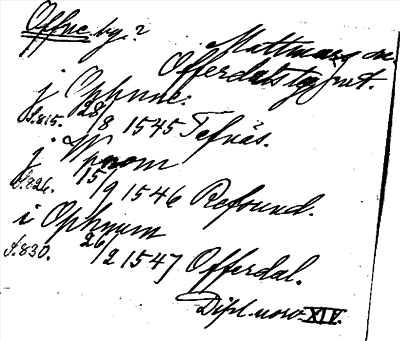 Offne, by?
Mattmar sn.
Offerdals tg, Jmt.
j Ophnne:
S. 815. 28/8 1545 Tefnäs.
j Vpnom
S. 826. 15/9 1546 Refsund.
i Ophnum
S. 830. 26/2 1547 Offerdal.
Dipl. norv. XIV.